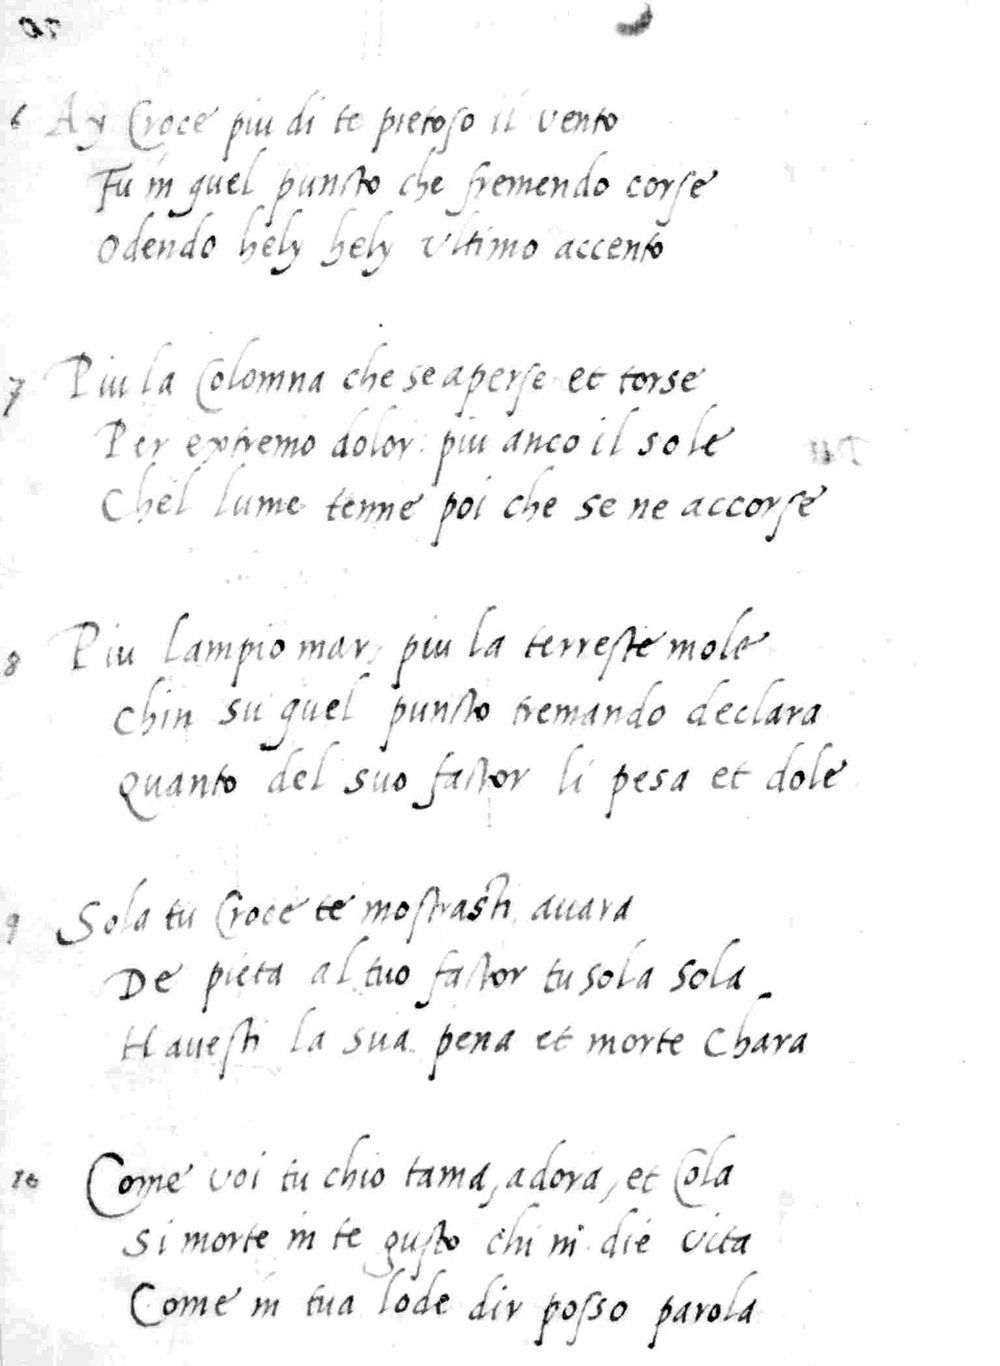 6 Ay Croce piu di te pietoso il vento
Fu in quel puncto che fremendo corse
Odendo hely hely ultimo accento
7 Piu la Colomna che se aperse et torse
Per extremo dolor: piu anco il sole
Chel lume tenne poi che se ne accorse
8 Piu lampio mar, piu la terreste mole
Chin su quel puncto tremando declara
Quanto del suo factor li pesa et dole
9 Sola tu Croce te mostrasti avara
De pieta al tuo factor tu sola sola
Havesti la sua pena et morte Chara
10 Come voi tu chio tama, adora, et Cola
Si morte in te gusto chi ni die vita
Come in tua lode dir posso parola